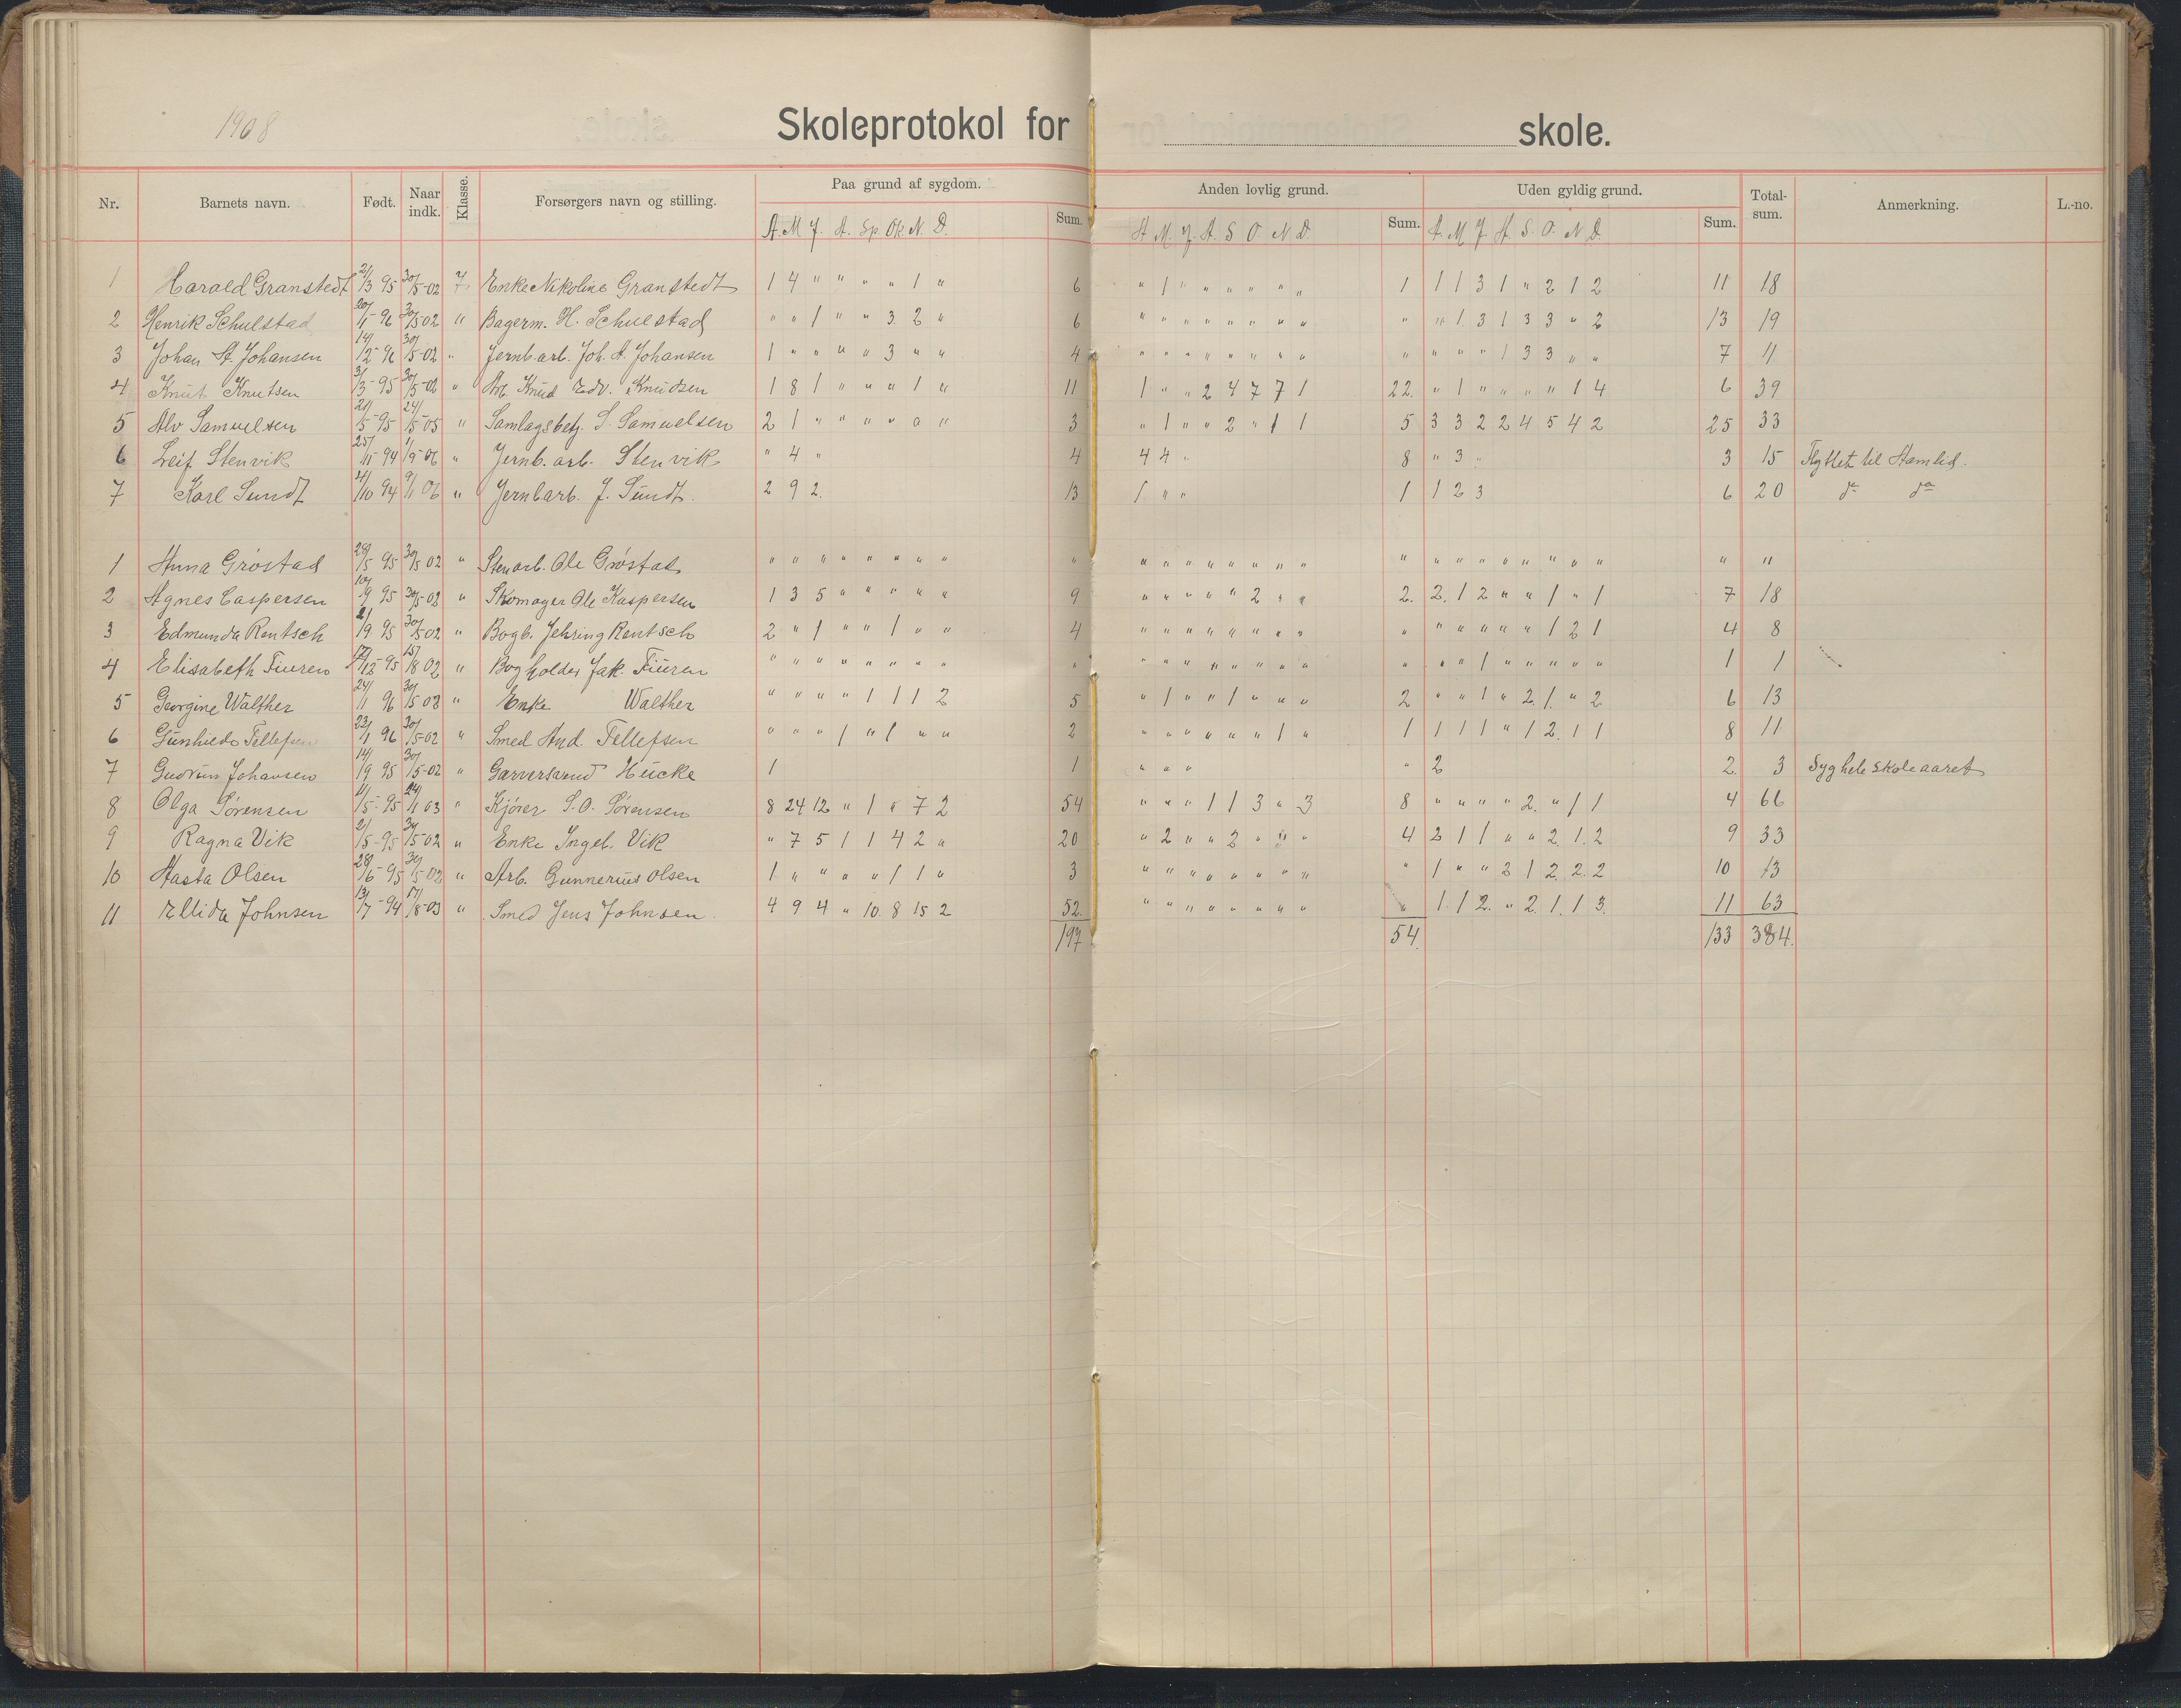 1908
Skoleprotokol for skole.
Nr. Barnets navn. Født. Naar indk. Klasse. Forsørgers navn og stilling. Paa grund af sygdom. Sum. Anden lovlig grund. Sum. Uden gyldig grund. Sum. Total-sum. Anmerkning. L.-no.
A. M J. A. Sp. Ok. N. D. A M. J. A. S O N D. A. M J A. S. O. N D.
1 Harald Granstedt 21/3 95 30/5-02 7 Enke Nikoline Granstedt 1 4 " " " " 1 " 6 " 1 " " " " " " 1 1 1 3 1 " 2 1 2 11 18
2 Henrik Schulstad 20/1-96 30/5 02 " Bagerm. H. Schulstad " " 1 " " 3 2 " 6 " " " " " " " " " " 1 3 1 3 3 " 2 13 19
3 Johan A. Johansen 14/12-96 30/5-02 " Jernb.arb. Joh. A. Johansen 1 " " " " 3 " " 4 " " " " " " " " " " " " 1 3 3 " " 7 11
4 Knut Knutsen 31/3-95 30/5-02 " Arb. Knud Edv. Knudsen 1 8 1 " " " 1 " 11 1 " " 2 4 7 7 1 22. " 1 " " " " 1 4 6 39
5 Alv Samuelsen 21/5-95 24/5-05 " Samlagsbetj. S. Samuelsen 2 1 " " " " " " 3 " 1 " " 2 " 1 1 5 3 3 2 2 4 5 4 2 25 33
6 Leif Stenvik 25/11-94 1/9-06 " Jernb. arb. Stenvik " 4 " 4 4 4 " 8 " 3 " 3 15 Flyttet til Hamlid.
7 Karl Sundt /10 94 9/1 06 " Jernb arb. J. Sundt. 2 9 2. 13 1 " " 1 1 2 3 6 20 do do
1 Anna Grøstad 29/5 95 30/5 02 " Stenarb. Ole Grøstad " " " " " " " " " " " " " " " " " " " " " " " " " " " " "
2 Agnes Caspersen 10/9 95 30/5-02 " Skomager Ole Kaspersen 1 3 5 " " " " " 9 " " " " " 2 " " 2. 2. 1 2 " " 1 " 1 7 18
3 Edmunda Rentsch 2/9 95 30/5 02 " Bogb. Jehring Rentsch 2 " 1 " " 1 " " 4 " " " " " " " " " " " " " " 1 2 1 4 8
4 Elisabeth Tiuren 17/12-95 15/8 02 " Bogholder Jak. Tiuren " " " " " " " " " " " " " " " " " " " " 1 " " " " " 1 1
5 Georgine Walther 24/1 96 30/5 02 " Enke Walther " " " " 1 1 1 2 5 " 1 " " 1 " " " 2 " " 1 " 2. 1. " 2 6 13
6 Gunhild Tellefsen 23/1 96 30/5-02 " Smed And. Tellefsen " " " 1 " 1 " " 2 " " " " " " 1 " 1 1 1 1 " 1 2. 1 1 8 11
7 Gudrun Johansen 14/9 95 30/5-02 " Garversvend Hücke 1 1 " " " " 2 2. 3 Syg hele skoleaaret
8 Olga Sørensen 11/5-95 24/1 03 " Kjører S. O. Sørensen 8 24 12 " 1 " 7 2 54 " " " 1 1 3 " 3 8 " " " " 2. " 1 1 4 66
9 Ragna Vik 2/5-95 30/5 02 " Enke Ingeb. Vik " 7 5 1 1 4 2 " 20 " 2 " " 2 " " " 4 2 1 1 " " 2. 1. 2 9 33
10 Aasta Olsen 28/6-95 30/5-02 " Arb. Gunnerius Olsen 1 " " " " 1 1 " 3 " " " " " " " " " 1 " " 2 1 2. 2. 2 10 13
11 Ellida Johnsen 13/7-94 17/8-03 " Smed Jens Johnsen. 4 9 4 " 10. 8 15 2 52. " " " " " " " " " 1. 1 2. " 2. 1. 1 3. 11 63
197 54. 133 384.